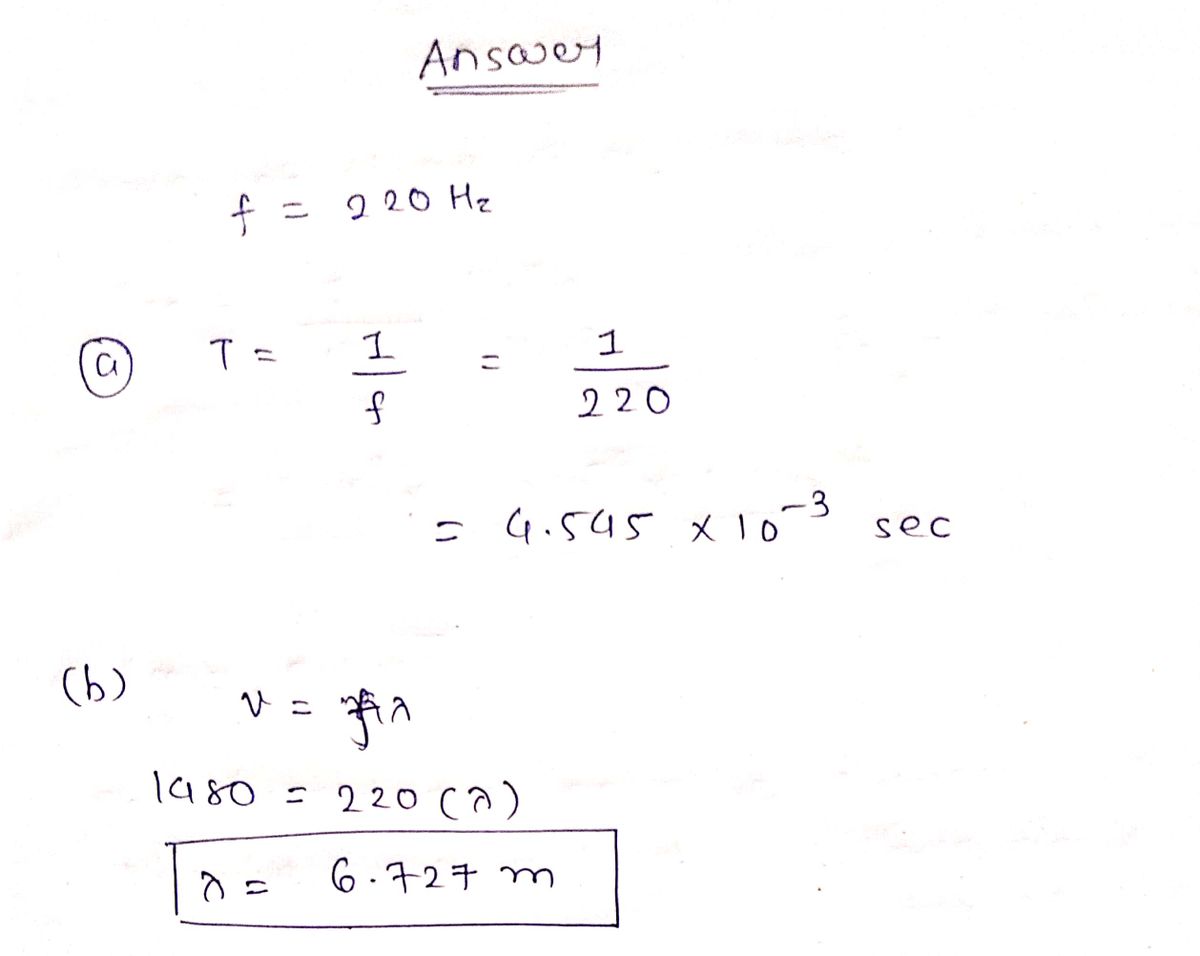 Answer
f = 220 Hz
(a) T = 1/f = 1/220
= 4.545 × 10⁻³ sec
(b) v = fλ
1480 = 220 (λ)
λ = 6.727 m